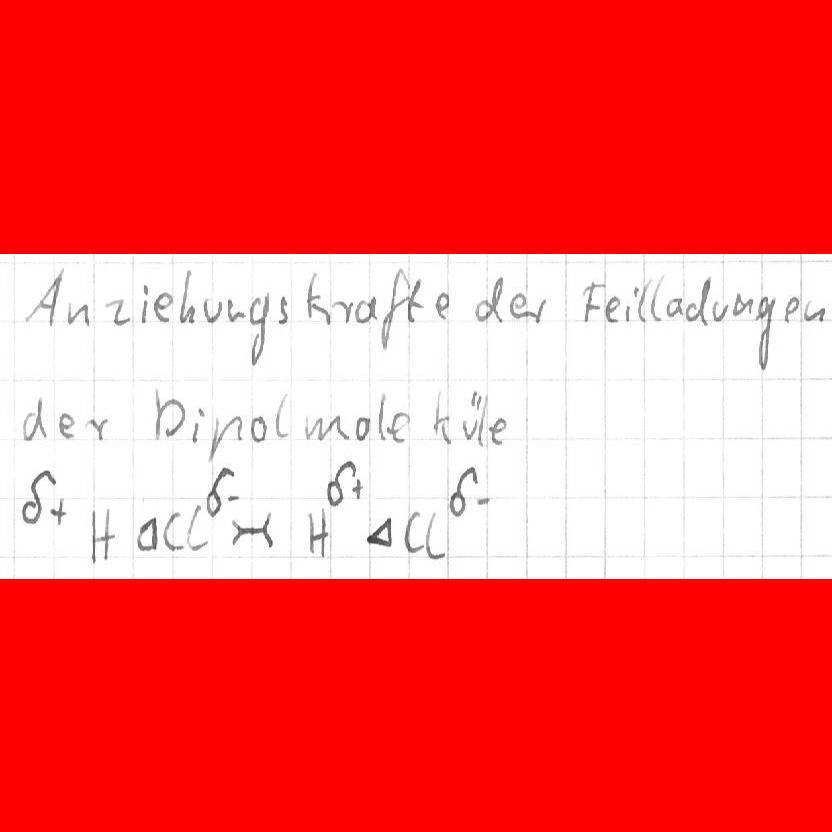 Anziehungskrafte der Teilladungen
der Dipolmoleküle
δ+ H ⊲Cl δ- >-< H δ+ ⊲Cl δ-